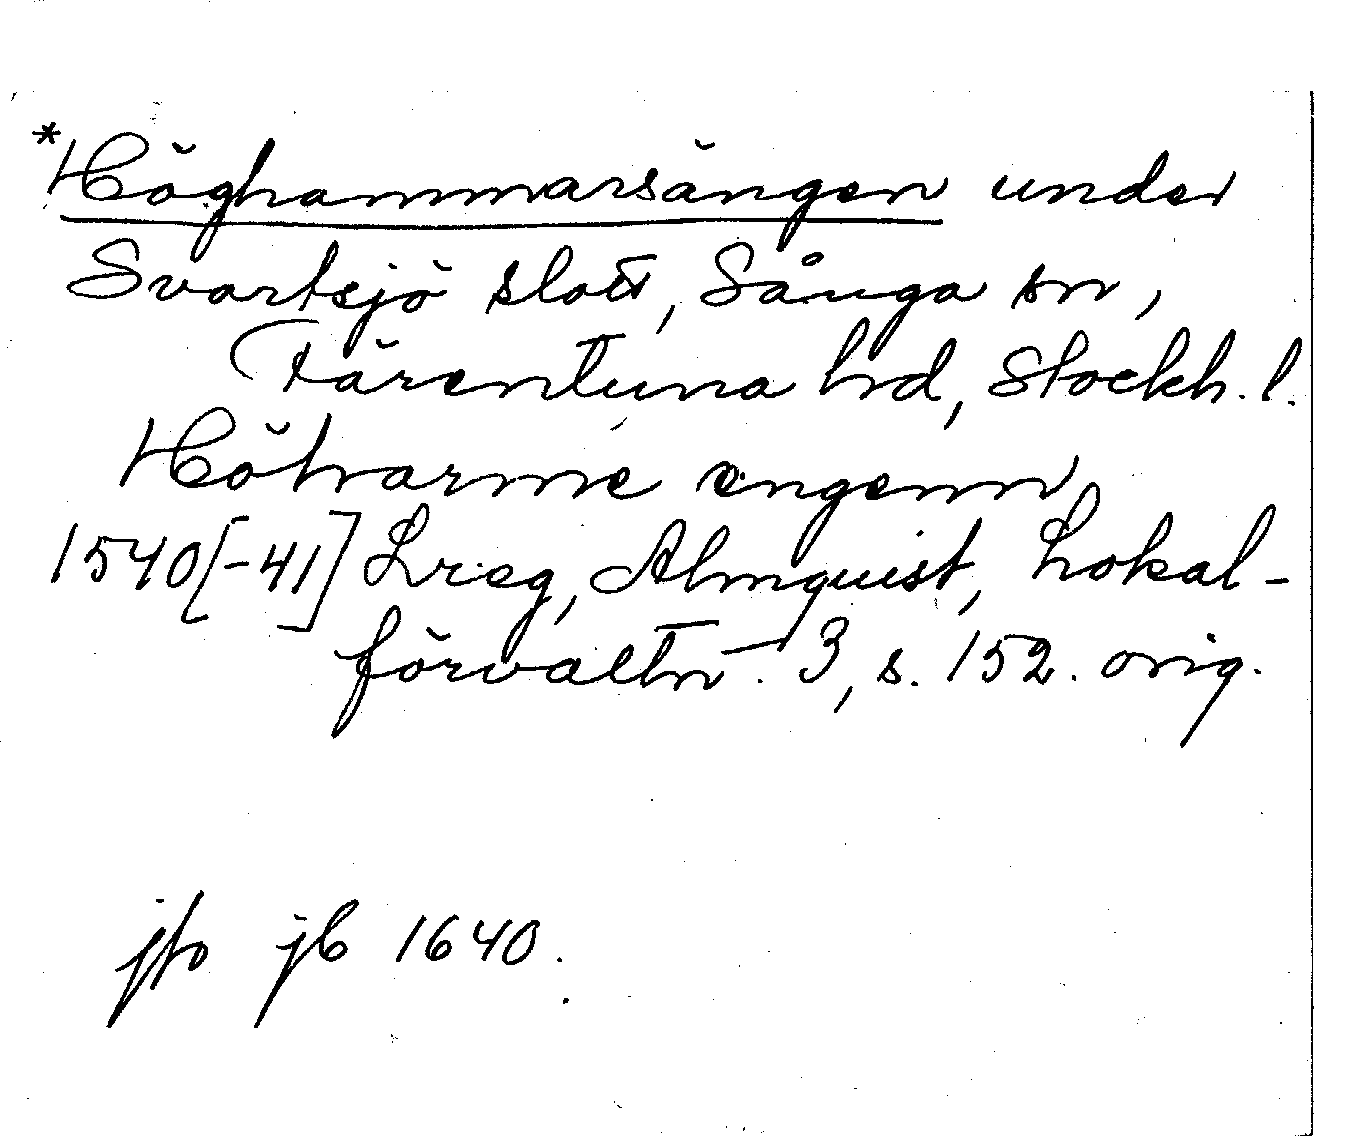 *Höghammarsängen under
Svartsjö slott, Sånga sn,
Färentuna hd, Stockh. l.
Höharme engenn
1540[-41] Lreg, Almquist, Lokal-
förvaltn. 3, s. 152. orig.
jfr jb 1640.